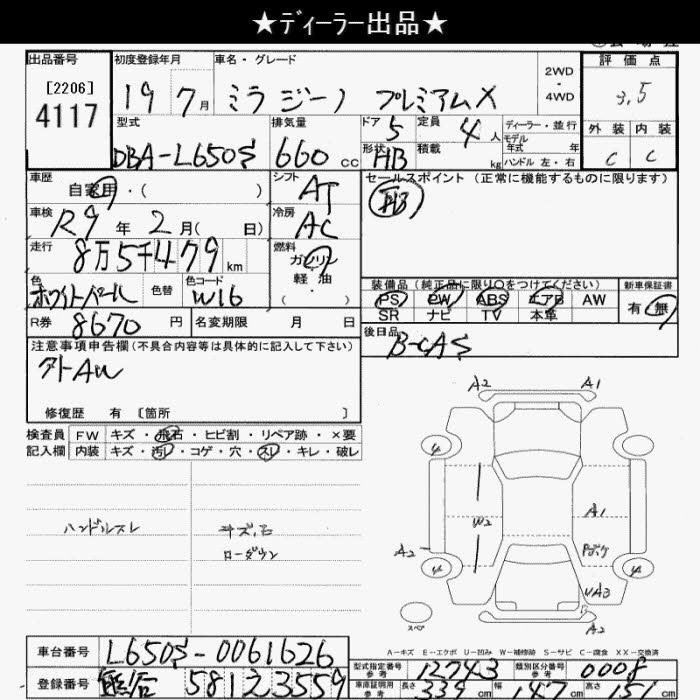 ★ディーラー出品★
出品番号
[2206]
4117
初度登録年月
19 年 7月
車名・グレード
ミラ ジーノ プレミアムX
2WD
・
4WD
評価点
3.5
外装 内装
C C
型式
DBA-L650S
排気量
660 cc
ドア 5
形状 HB
定員 4 人
積載 kg
ディーラー・並行
モデル年式 年
ハンドル 左・右
車歴
自家用・( )
シフト
AT
車検
R9 年 2月( 日)
冷房
AC
走行
8万5千479 km
燃料
ガソリン
軽油
・
色
ホワイトパール
色替
色コード
W16
R券 8670 円
名変期限 月 日
セールスポイント (正常に機能するものに限ります)
装備品 (純正品に限り○をつけてください)
PS PW ABS エアB AW
SR ナビ TV 本革
新車保証書
有 無
後日品
B-CAS
注意事項申告欄(不具合内容等は具体的に記入して下さい)
外AW
修復歴 有 〔箇所 〕
検査員 FW キズ・飛石・ヒビ割・リペア跡・×要
記入欄 内装 キズ・汚レ・コゲ・穴・スレ・キレ・破レ
ハンドルスレ
キズ、石
ローダウン
A2 A1
4
W2
A1
A2
4 4
UA3
スペア
A2
A-キズ E-エクボ U-凹み W-補修跡 S-サビ C-腐食 XX-交換済
車台番号 L650S-0061626
登録番号 581 2 3559
型式指定番号 参考 12743
類別区分番号 参考 0008
車庫証明用 参考 長さ cm 幅 147 cm 高さ cm